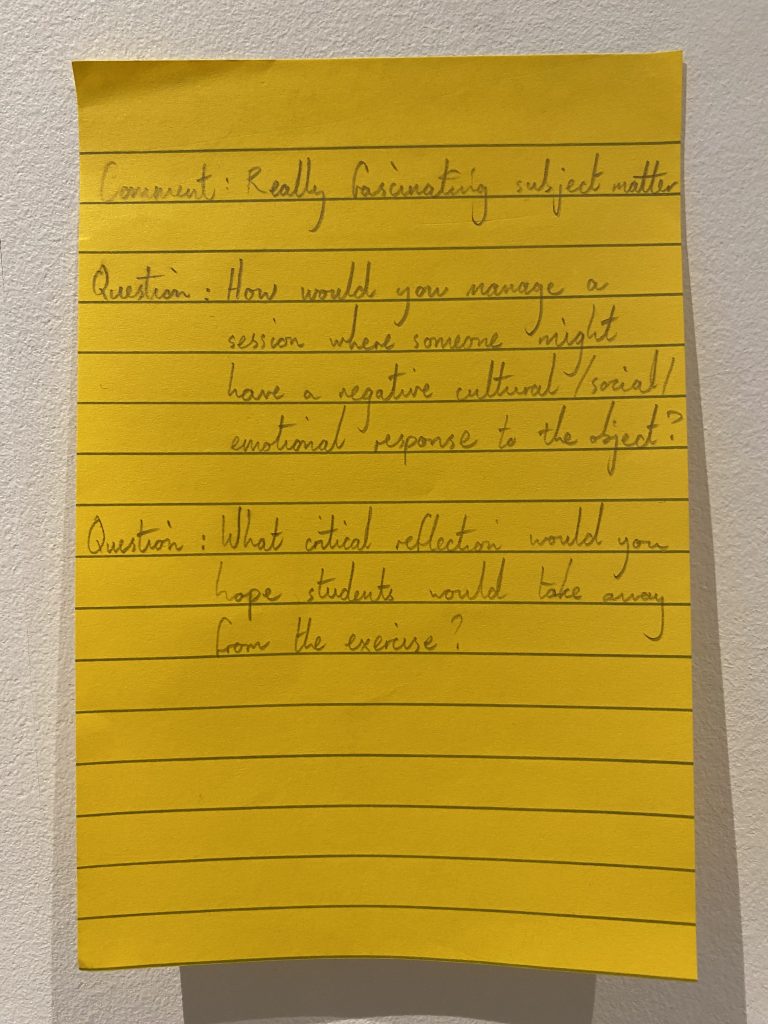 Comment: Really fascinating subject matter
Question: How would you manage a
session where someone might
have a negative cultural/social/
emotional response to the object?
Question: What critical reflection would you
hope students would take away
from the exercise?